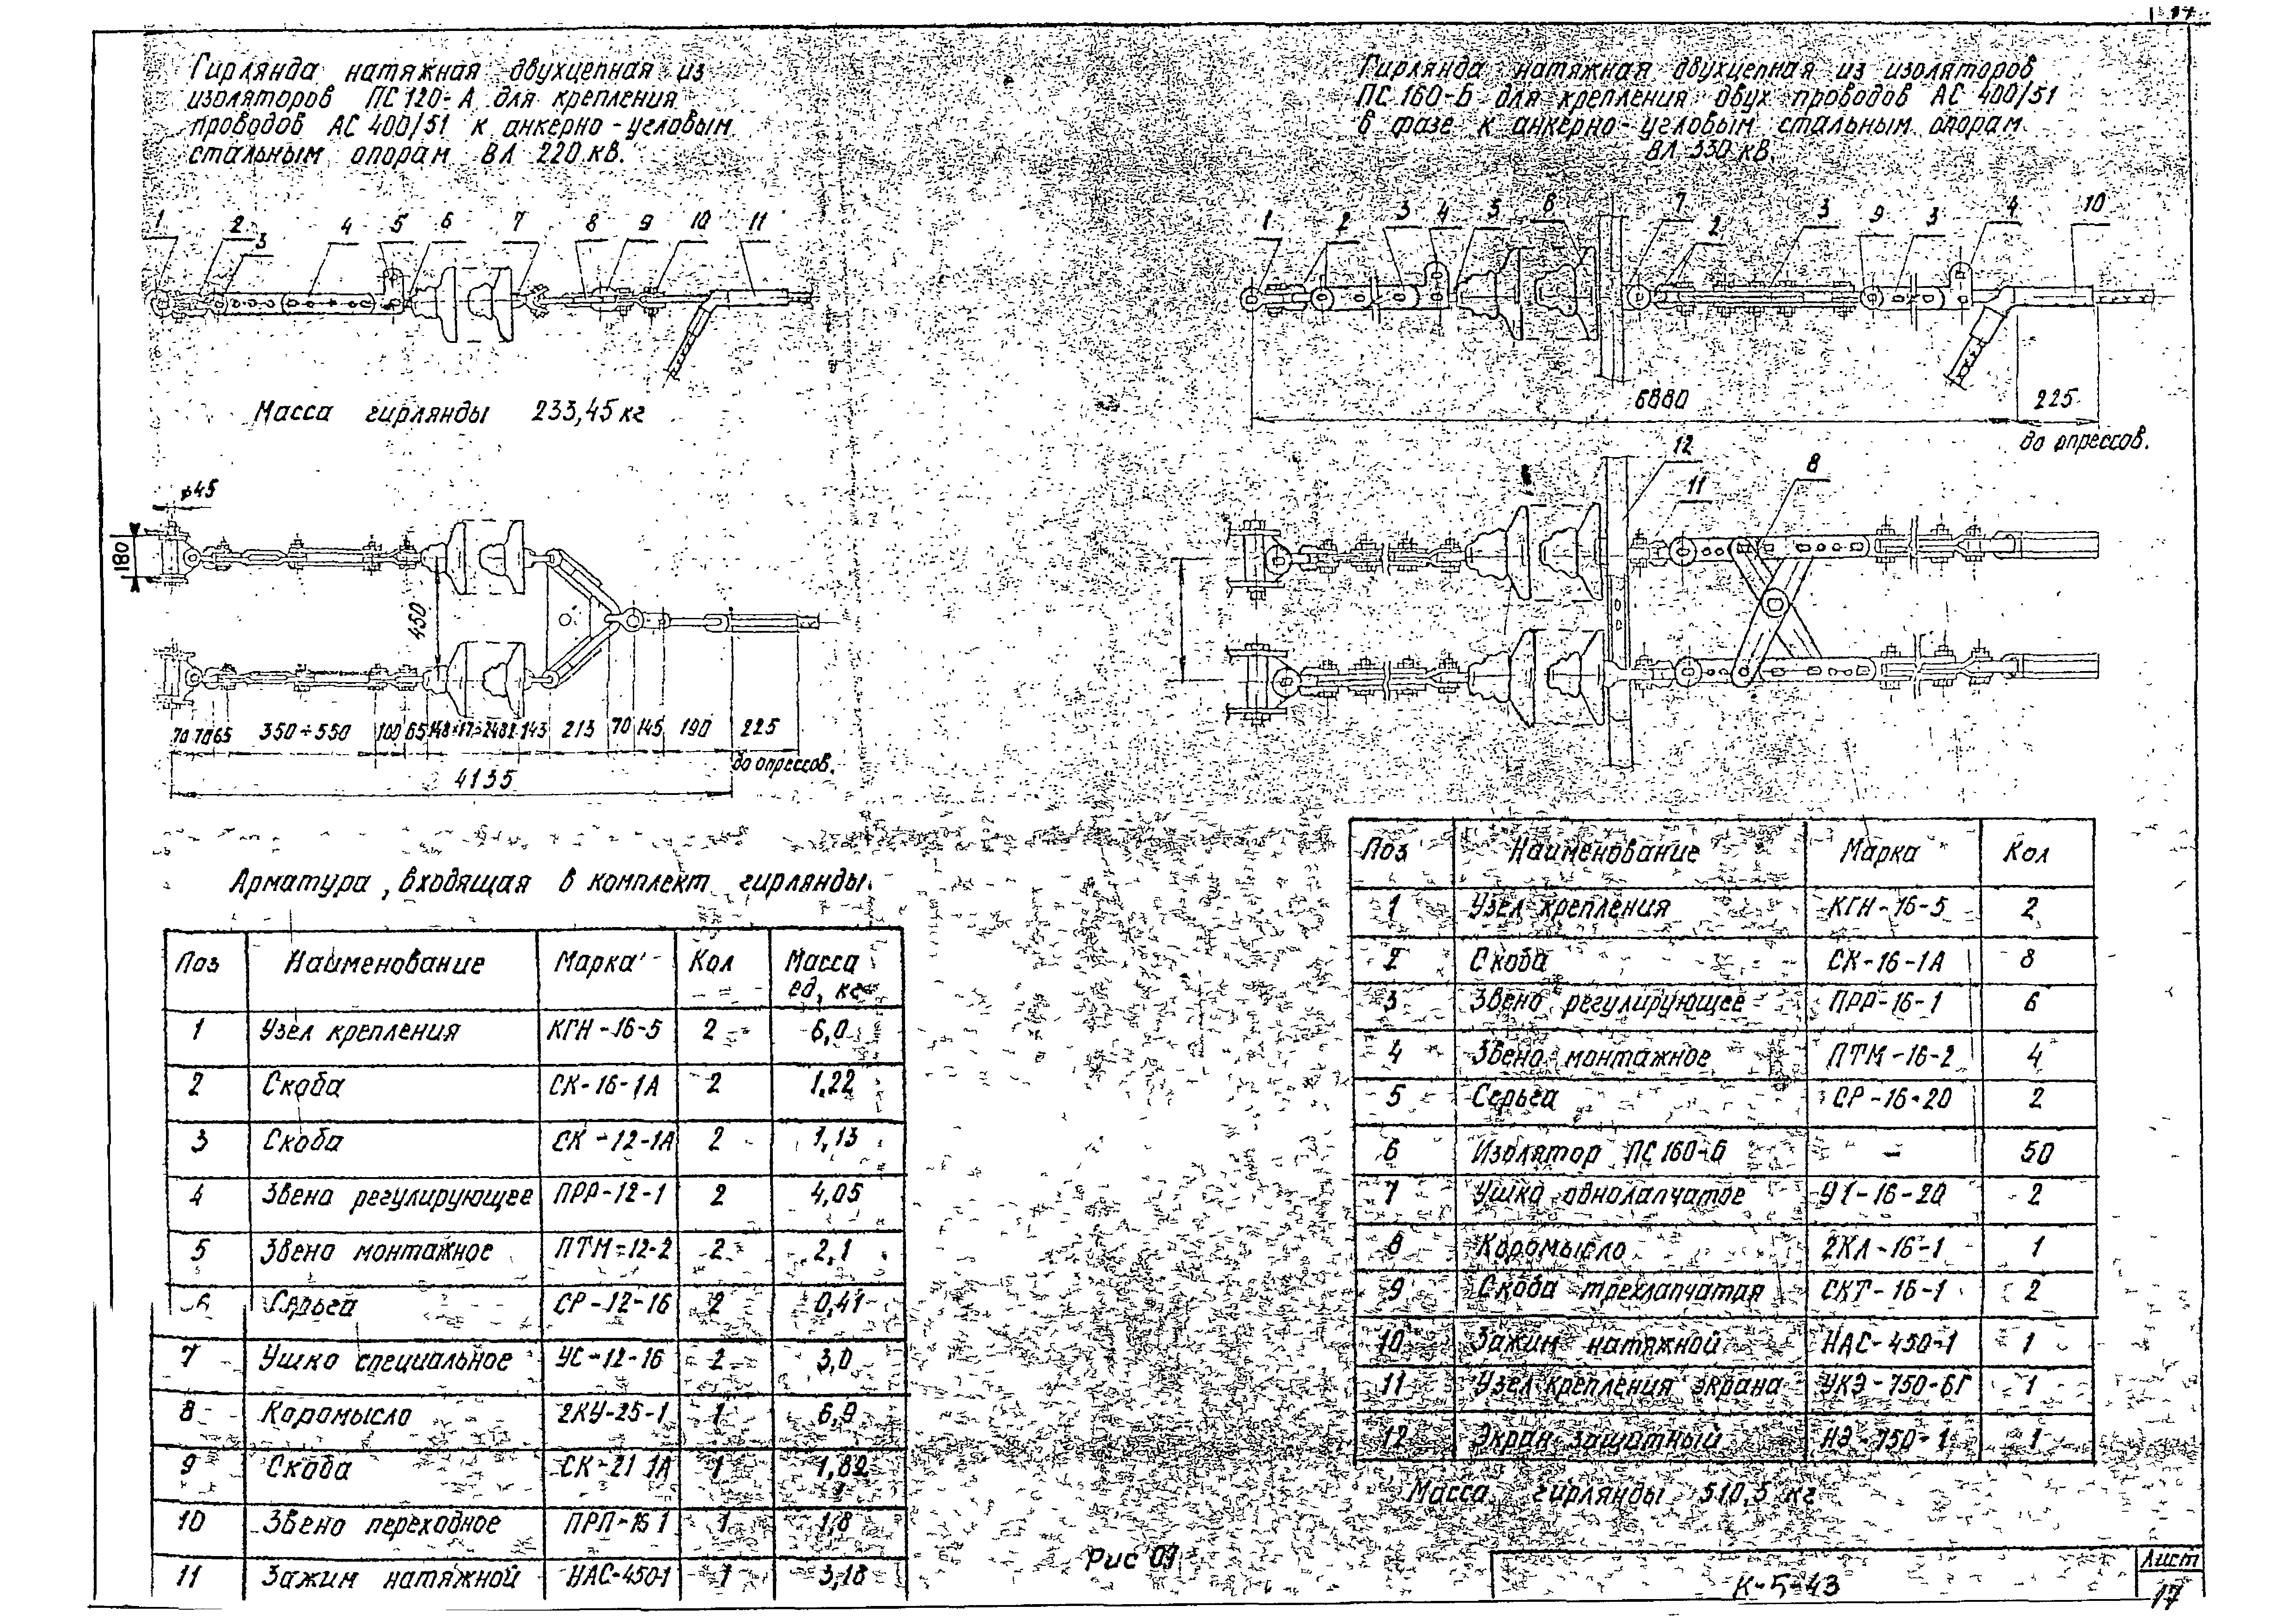 17
Гирлянда натяжная двухцепная из
изоляторов ПС 120-А для крепления
проводов АС 400/51 к анкерно-угловым
стальным опорам ВЛ 220 кв.
1 2 3 4 5 6 7 8 9 10 11
Масса гирлянды 233,45 кг
ø45
180
450
70 70 65 350÷550 100 65 143 213 70 145 190 225
до опрессов.
4135
Арматура, входящая в комплект гирлянды.
Поз Наименование Марка Кол Масса ед, кг
1 Узел крепления КГН-16-5 2 6,0
2 Скоба СК-16-1А 2 1,22
3 Скоба СК-12-1А 2 1,13
4 Звено регулирующее ПРР-12-1 2 4,05
5 Звено монтажное ПТМ-12-2 2 2,1
6 Серьга СР-12-16 2 0,41
7 Ушко специальное УС-12-16 2 3,0
8 Коромысло 2КУ-25-1 1 6,9
9 Скоба СК-21 1А 1 1,82
10 Звено переходное ПРП-16 1 1 1,8
11 Зажим натяжной НАС-450-1 1 3,18
Гирлянда натяжная двухцепная из изоляторов
ПС 160-Б для крепления двух проводов АС 400/51
в фазе к анкерно-угловым стальным опорам
ВЛ 330 кв.
1 2 3 4 5 6 7 2 3 9 3 4 10
6880 225
до опрессов.
12 11 8
Поз Наименование Марка Кол
1 Узел крепления КГН-16-5 2
2 Скоба СК-16-1А 8
3 Звено регулирующее ПРР-16-1 6
4 Звено монтажное ПТМ-16-2 4
5 Серьга СР-16-20 2
6 Изолятор ПС 160-Б - 50
7 Ушко однолапчатое У1-16-20 2
8 Коромысло 2КЛ-16-1 1
9 Скоба трехлапчатая СКТ-16-1 2
10 Зажим натяжной НАС-450-1 1
11 Узел крепления экрана УКЭ-750-6Г 1
12 Экран защитный НЭ-750-1 1
Масса гирлянды 510,5 кг
Рис 01
К-5-43
Лист
17